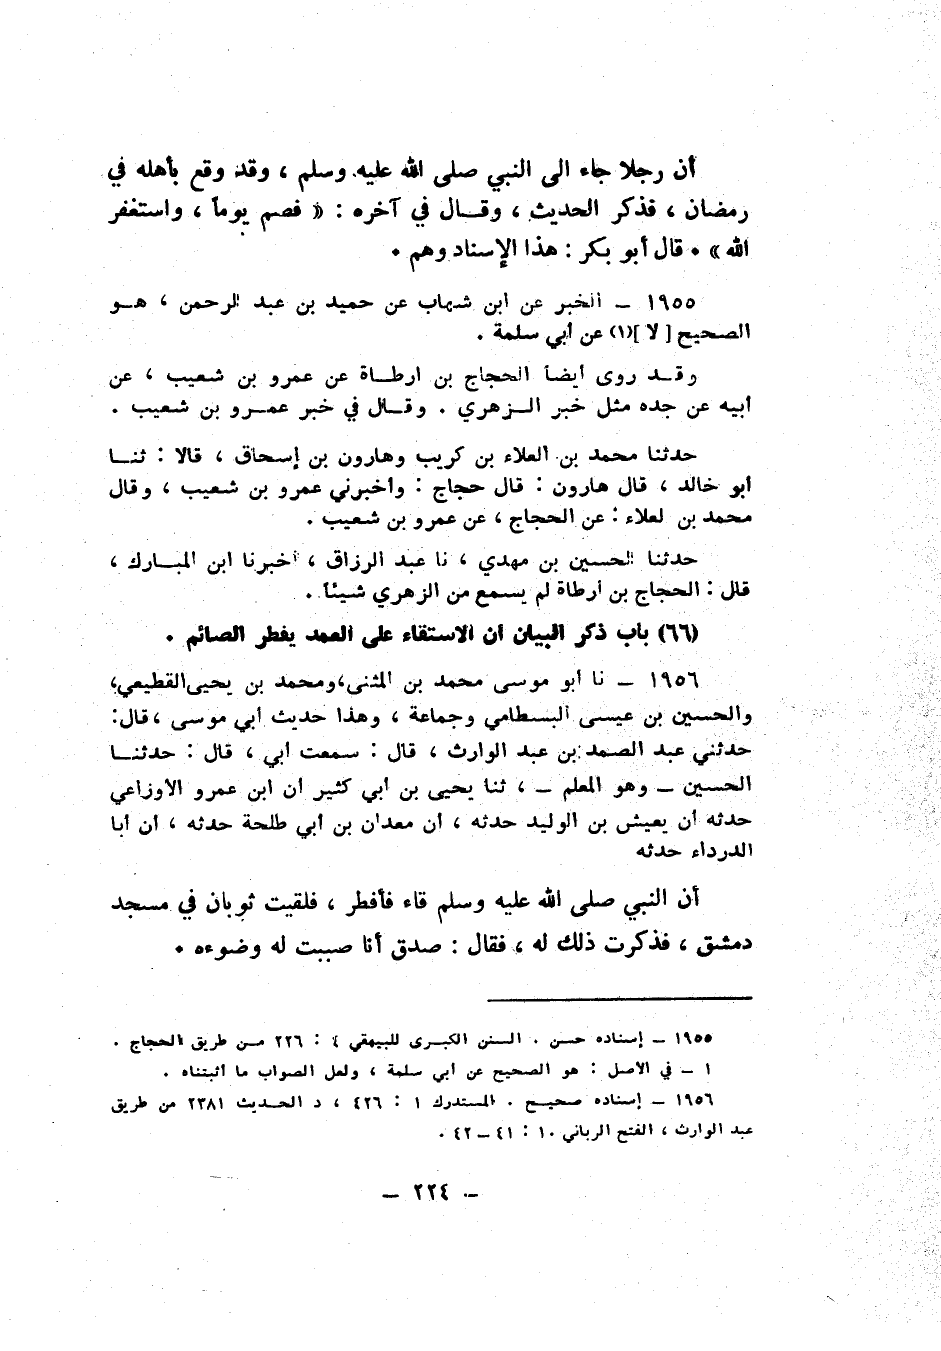 أن رجلا جاء الى النبي صلى الله عليه وسلم ، وقد وقع بأهله في
رمضان ، فذكر الحديث ، وقـــال في آخره : « فصم يوماً ، واستغفر
الله » . قال أبو بكر : هذا الإسناد وهم .
١٩٥٥ – الخبر عن ابن شهاب عن حميد بن عبد الرحمن ، هـــو
الصحيح [ لا ](١) عن أبي سلمة .
وقـــد روى أيضاً الحجاج بن ارطـــاة عن عمرو بن شعيب ، عن
أبيه عن جده مثل خبر الـــزهري . وقـــال في خبر عمـــرو بن شعيب .
حدثنا محمد بن العلاء بن كريب وهارون بن إسحاق ، قالا : ثنـــا
أبو خالد ، قال هارون : قال حجاج : وأخبرني عمرو بن شعيب ، وقال
محمد بن لعلاء : عن الحجاج ، عن عمرو بن شعيب .
حدثنا الحسين بن مهدي ، نا عبد الرزاق ، أخبرنا ابن المبـــارك ،
قال : الحجاج بن أرطاة لم يسمع من الزهري شيئاً .
(٦٦) باب ذكر البيان ان الاستقاء على العمد يفطر الصائم .
١٩٥٦ – نا أبو موسى محمد بن المثنى،ومحمد بن يحيى القطيعي،
والحسين بن عيسى البسطامي وجماعة ، وهذا حديث أبي موسى ،قال:
حدثني عبد الصمد بن عبد الوارث ، قال : سمعت أبي ، قال : حدثنـــا
الحسين – وهو المعلم – ، ثنا يحيى بن أبي كثير أن ابن عمرو الأوزاعي
حدثه أن يعيش بن الوليد حدثه ، أن معدان بن أبي طلحة حدثه ، أن أبا
الدرداء حدثه
أن النبي صلى الله عليه وسلم قاء فأفطر ، فلقيت ثوبان في مسجد
دمشق ، فذكرت ذلك له ، فقال : صدق أنا صببت له وضوءه .
١٩٥٥ – إسناده حسن . الـــنن الكبرى للبيهقي ٤ : ٢٢٦ مـــن طريق الحجاج .
١ – في الاصل : هو الصحيح عن أبي سلمة ، ولعل الصواب ما أثبتناه .
١٩٥٦ – إسناده صحيـــح . المستدرك ١ : ٤٢٦ ، د الحـــديث ٢٣٨١ من طريق
عبد الوارث ، الفتح الرباني ١٠ : ٤١ – ٤٢ .
– ٢٢٤ –